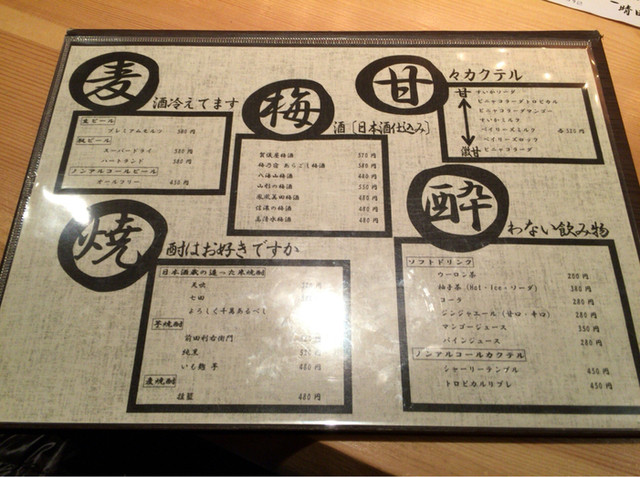 麦
酒冷えてます
生ビール
プレミアムモルツ 580円
瓶ビール
スーパードライ 580円
ハートランド 580円
ノンアルコールビール
オールフリー 450円
梅
酒〔日本酒仕込み〕
賀儀屋梅酒
梅乃宿 あらごし梅酒
八海山梅酒
山形の梅酒
鳳凰美田梅酒
信濃の梅酒
高清水梅酒 480円
甘
々カクテル
甘
すいかソーダ
ピニャコラーダトロピカル
ピニャコラーダマンゴー
すいかミルク
ベイリーズミルク 各520円
ベイリーズロック
激甘 ピニャコラーダ
焼
酎はお好きですか
日本酒蔵の造った米焼酎
天吹
七田
よろしく千萬あるべし
芋焼酎
前田利右衛門
純黒
いも麹 芋 480円
麦焼酎
480円
酔
わない飲み物
ソフトドリンク
ウーロン茶 200円
柚子茶(Hot・Ice・ソーダ) 380円
コーラ 280円
ジンジャエール(甘口・辛口) 280円
マンゴージュース 350円
パインジュース 280円
ノンアルコールカクテル
シャーリーテンプル 450円
トロピカルリプレ 450円